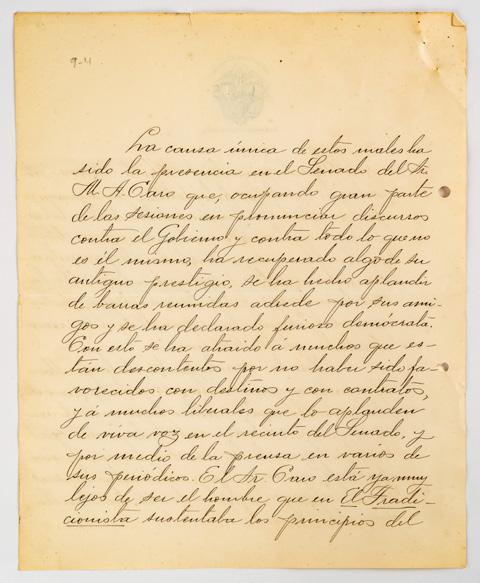 9-4
La causa única de estos males ha
sido la presencia en el Senado del Sr.
M. A. Caro que, ocupando gran parte
de las sesiones en pronunciar discursos
contra el Gobierno y contra todo lo que no
es él mismo, ha recuperado algo de su
antiguo prestigio, se ha hecho aplaudir
de barras reunidas adrede por sus ami-
gos y se ha declarado furioso demócrata.
Con esto se ha atraido á muchos que es-
tán descontentos por no haber sido fa-
vorecidos con destinos y con contratos,
y á muchos liberales que lo aplauden
de viva voz en el recinto del Senado, y
por medio de la prensa en varios de
sus periódicos. El Sr. Caro está ya muy
lejos de ser el hombre que en El Tradi-
cionista sustentaba los principios del